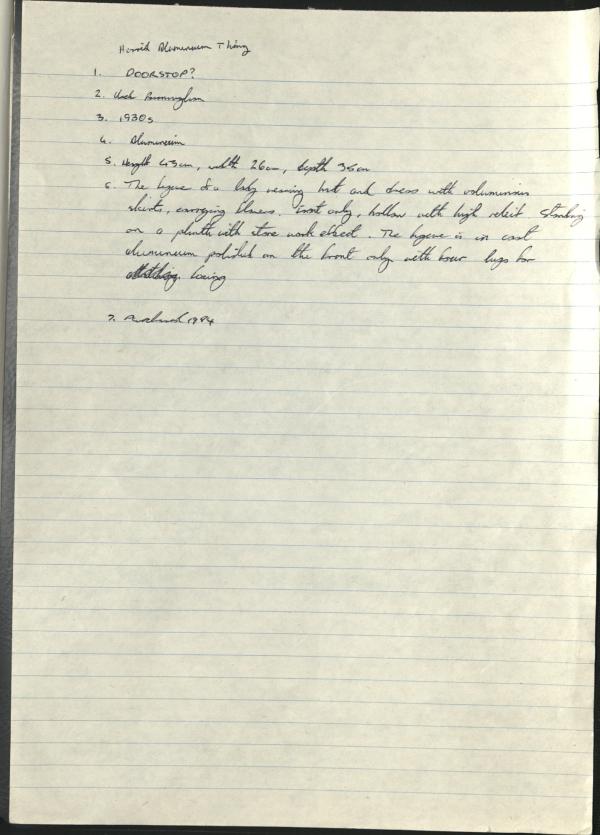 Horrid Aluminium Thing
1. DOORSTOP?
2. Birmingham
3. 1930s
4. Aluminium
5. Height 43cm, width 26cm, depth
6. The figure of a lady wearing hat and dress with voluminous
skirts, carrying flowers. Front only, hollow with high relief Standing
on a plinth with stone work effect. The figure is in cast
aluminium polished on the front only with four lugs for
fixing
7. Purchased 1994